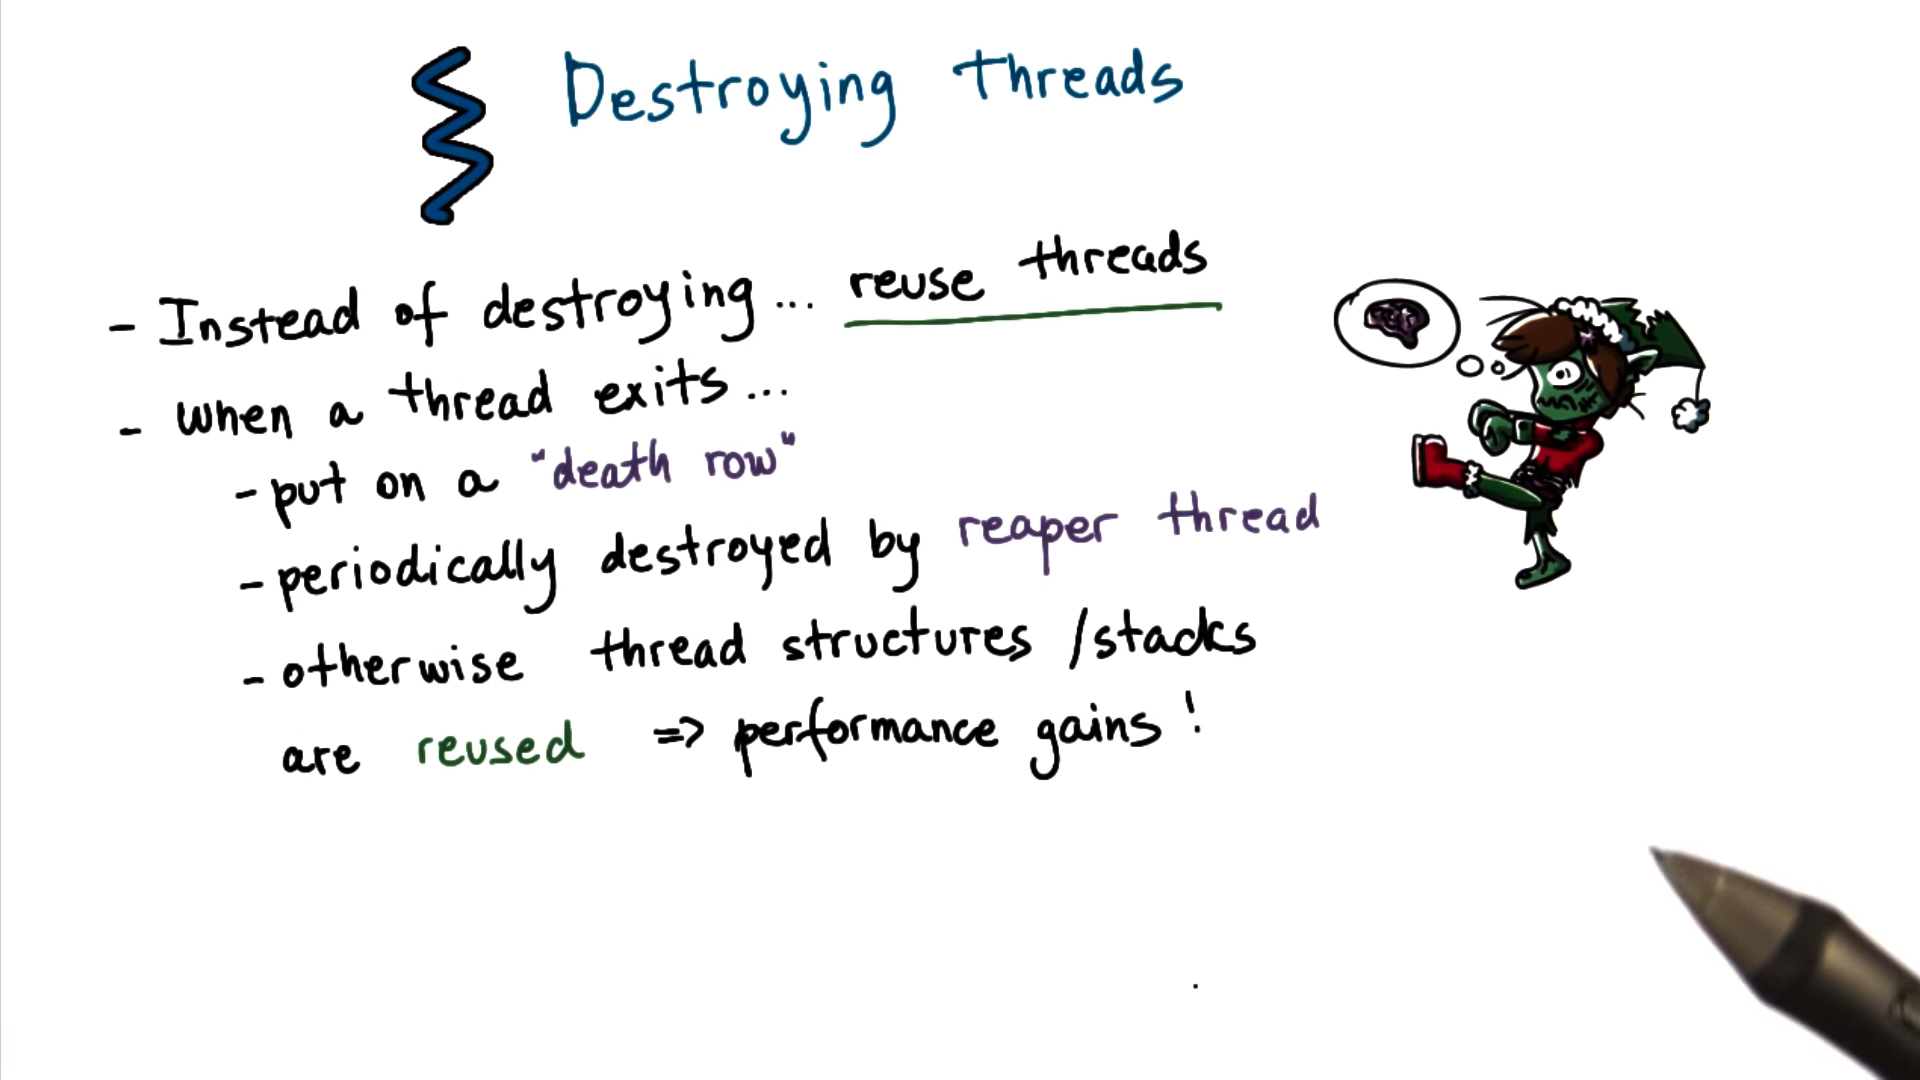 Destroying Threads
- Instead of destroying... reuse threads
- when a thread exits...
- put on a "death row"
- periodically destroyed by reaper thread
- otherwise thread structures /stacks
are reused => performance gains!